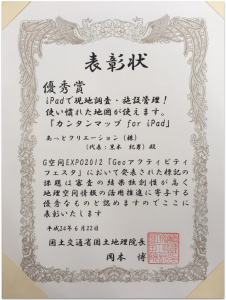 表彰状
優秀賞
iPadで現地調査・施設管理!
使い慣れた地図が使えます。
「カンタンマップ for iPad」
あっとクリエーション(株)
(代表:黒木 紀男)殿
G空間EXPO2012「Geoアクティビティ
フェスタ」において発表された標記の
課題は審査の結果独創性が高く
地理空間情報の活用推進に寄与する
優秀なものと認めますのでここに
表彰いたします
平成24年6月22日
国土交通省国土地理院長
岡本 博